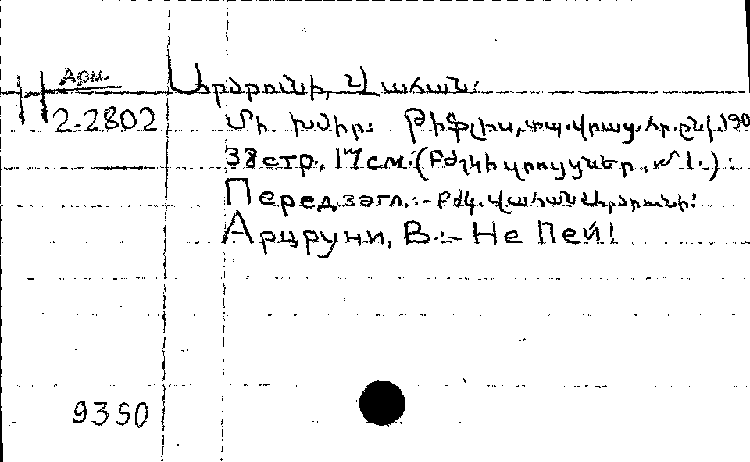 Арм.
Արծրունի, Վահան:
2-2802
Մի խմիր: Թիֆլիս, տպ. վրաց. հր. ընկ. 190
38стр., 17см. (Բժշկի զրույցներ, № 1.):
Перед загл.:- Բժկ. Վահան Արծրունի:
Арцруни, В.:- Не Пей!
9350